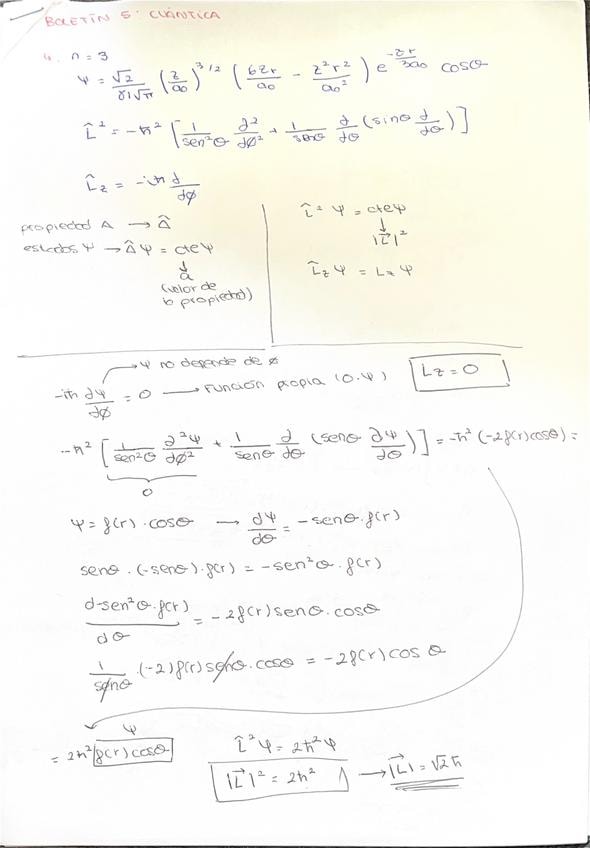 BOLETÍN 5: CUÁNTICA
n = 3
Ψ = √2/81√π (z/a₀)^3/2 (6zr/a₀ - z²r²/a₀²) e^-zr/3a₀ cosθ
L̂² = -ħ² [1/sen²θ ∂²/∂ϕ² + 1/senθ ∂/∂θ (sinθ ∂/∂θ)]
L̂z = -iħ ∂/∂ϕ
propiedad A → Â
estados Ψ → ÂΨ = cteΨ
↓
a
(valor de
la propiedad)
L̂² Ψ = cteΨ
↓
|L⃗|²
L̂z Ψ = Lz Ψ
→ Ψ no depende de ϕ
-iħ ∂Ψ/∂ϕ = 0 → Función propia (0·Ψ) Lz = 0
-ħ² [1/sen²θ ∂²Ψ/∂ϕ² + 1/senθ ∂/∂θ (senθ ∂Ψ/∂θ)] = -ħ² (-2f(r)cosθ) =
0
Ψ = f(r) · cosθ → dΨ/dθ = -senθ · f(r)
senθ · (-senθ) · f(r) = -sen²θ · f(r)
d-sen²θ·f(r)/dθ = -2f(r)senθ·cosθ
1/senθ · (-2)f(r)senθ·cosθ = -2f(r)cosθ
Ψ
= 2ħ² f(r)cosθ
L̂²Ψ = 2ħ²Ψ
|L⃗|² = 2ħ² → |L⃗| = √2ħ